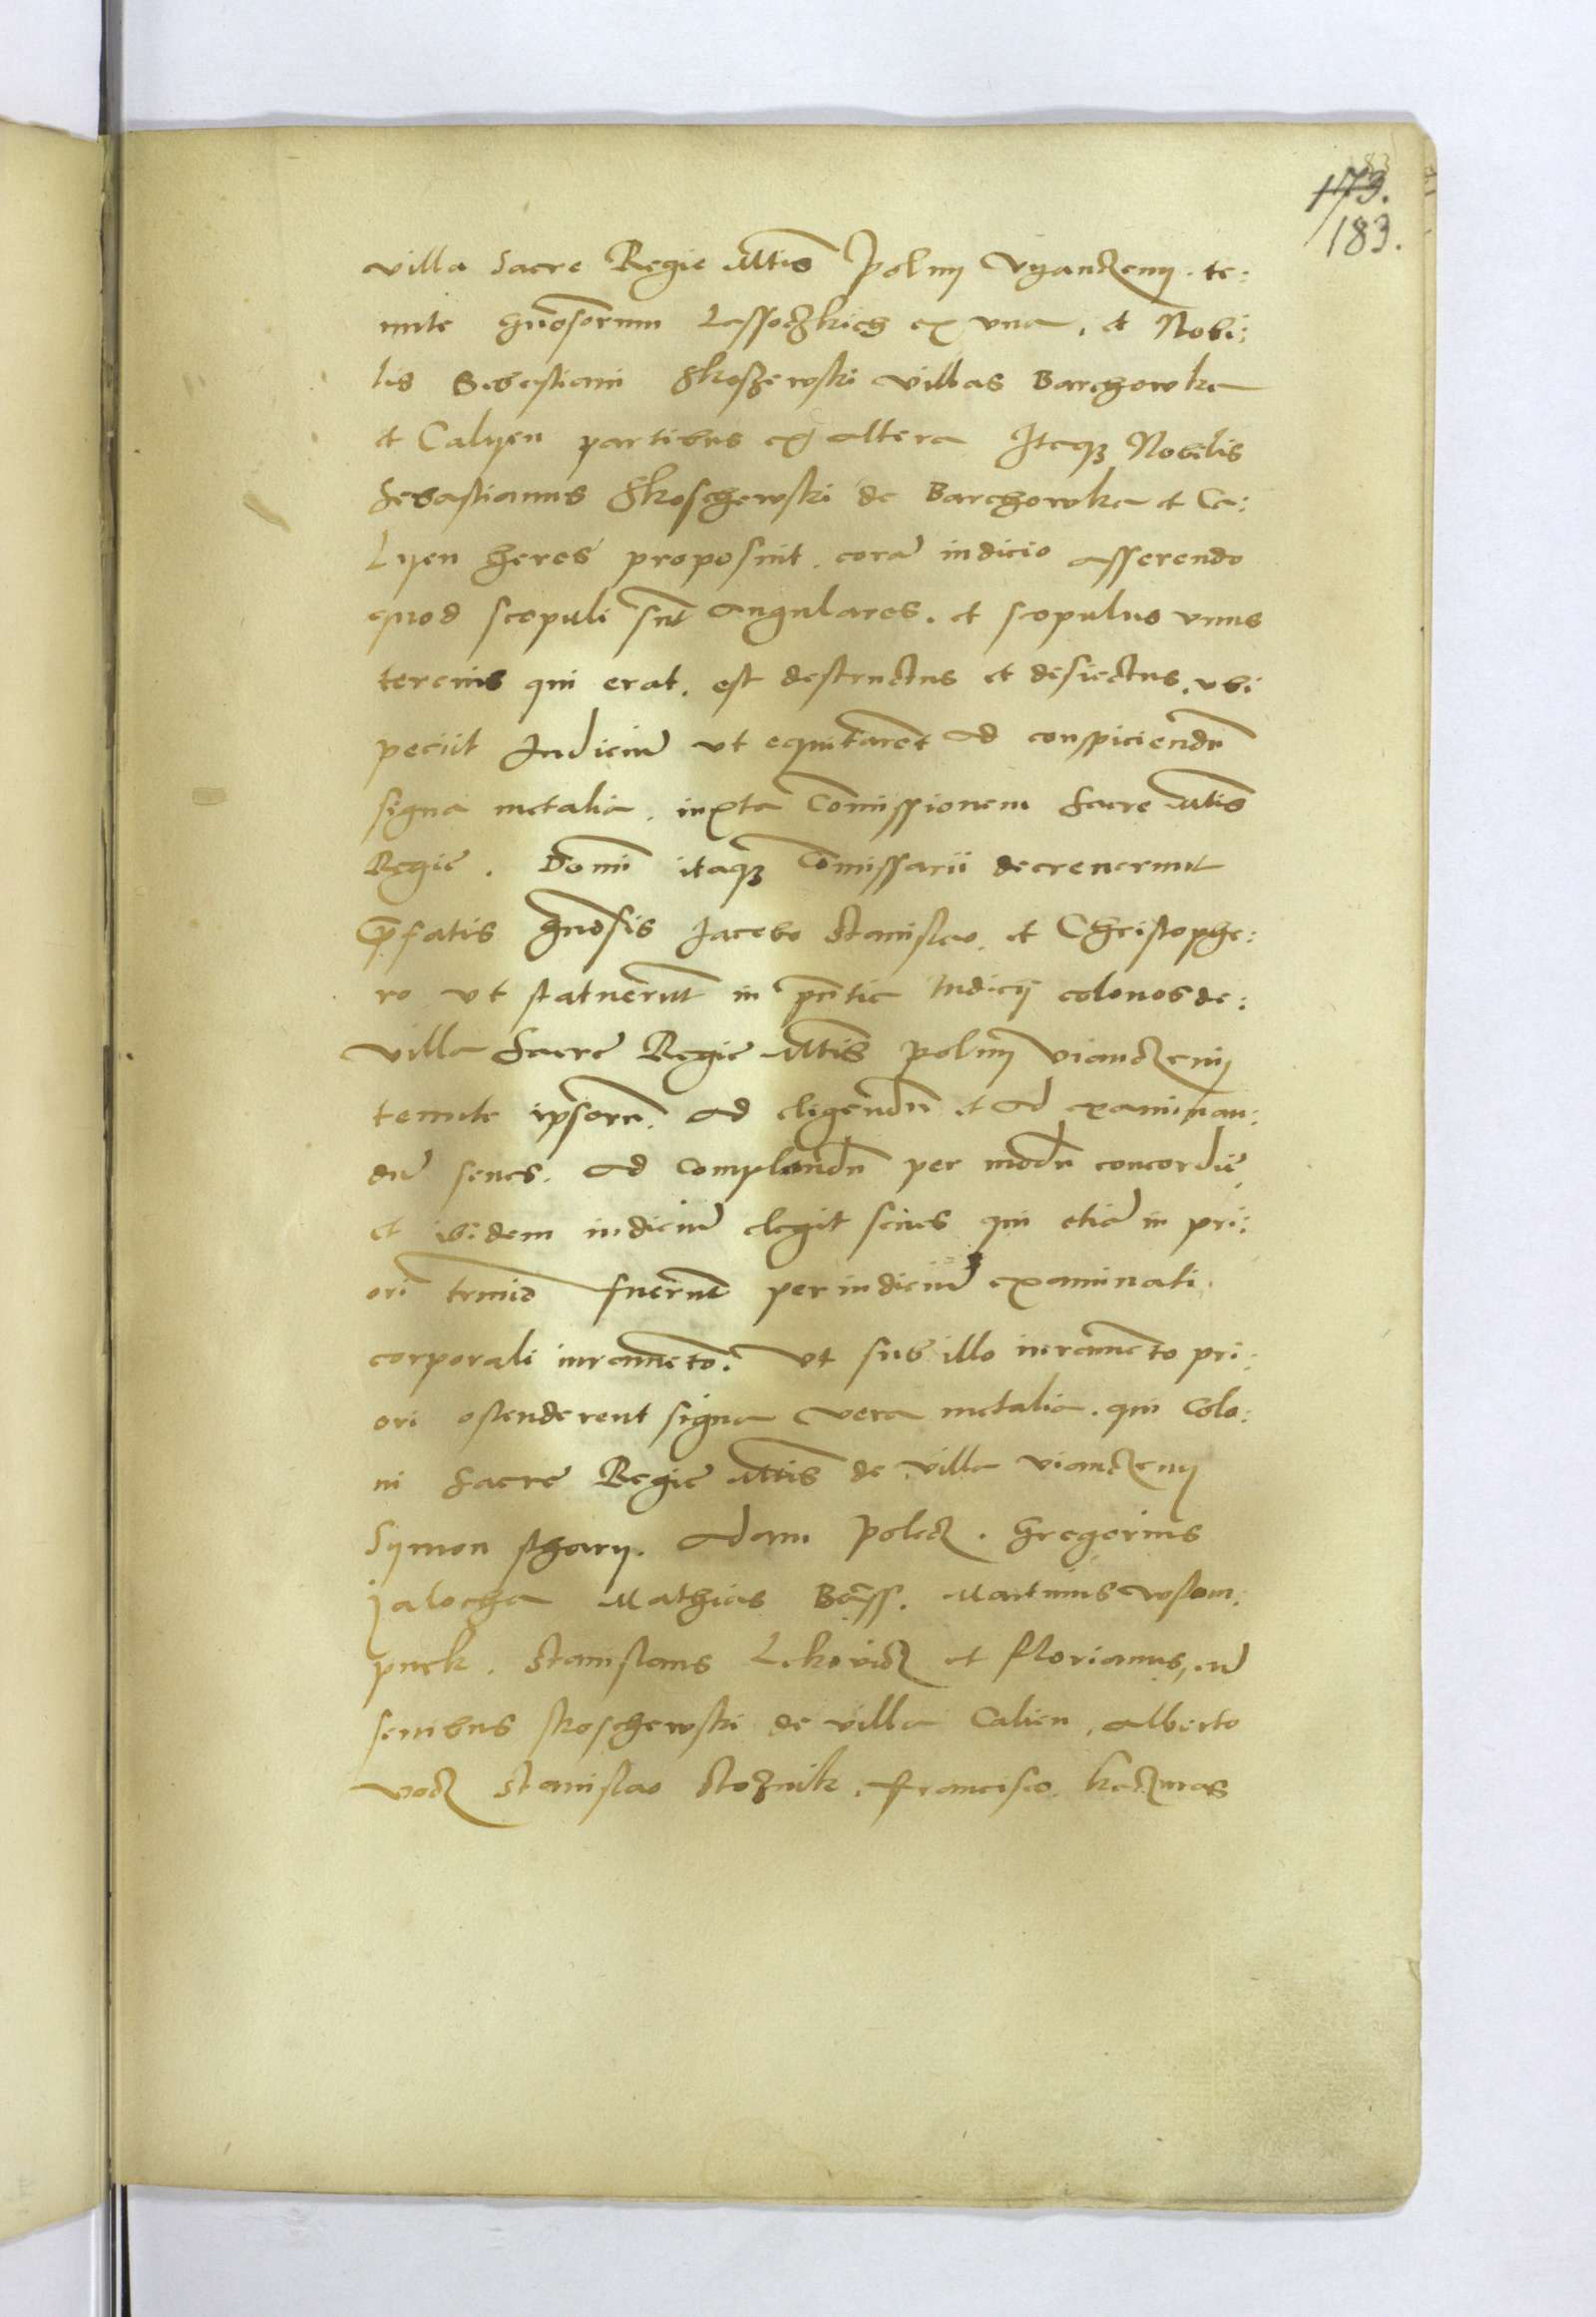 173.
183.
villa Sacre Regie Mtis Polnij Vyanczenij. te:
nute Gn̄osorum Lassoczkich ex vna, et Nobi:
lis Sebastiani Skoszewski villas Barchowka
et Calyen partibus ex altera Itaqz Nobilis
Sebastianus Skoschewski de Barchowka et Ca:
lyen heres proposuit. corā iudicio asserendo
quod scopuli sūt angulares. et scopulus vnus
tercius qui erat. est destructus et desiectus, vbi
peciit Iudiciū vt equitarēt ad conspiciendū
signa metalia. iuxta Comīssionem Sacre Mtis
Regie. Domī itaqz Comīssarii decreuerunt
p̄fatis Gnōsis Jacobo Stanislao, et Christophe:
ro vt statuerūt in pn̄tia Iudicij colonos de:
villa Sacre Regie Mtis polnij Vianczenij
tenute ip̄sorū. ad eligendū et ad examinan:
dū senes. ad complandū per modū concordie,
et ibidem iudiciū elegit senes qui etiā in pri:
ori trmīo fuerūt per iudiciū examinati.
corporali iuramēto. Vt sub illo iuramēto pri:
ori ostenderent signa vera metalia. qui Colo:
ni Sacre Regie Mtis de villa Vianczenij
Symon sthary. Adam Polecz. Gregorius
Jalocha Mathias Bāss. Martinus
puek. Stanislaus Lekovicz et Florianus, cū
senibus skoschewski de villa Calien, Alberto
vocz Stanislao stoznik, Francisco